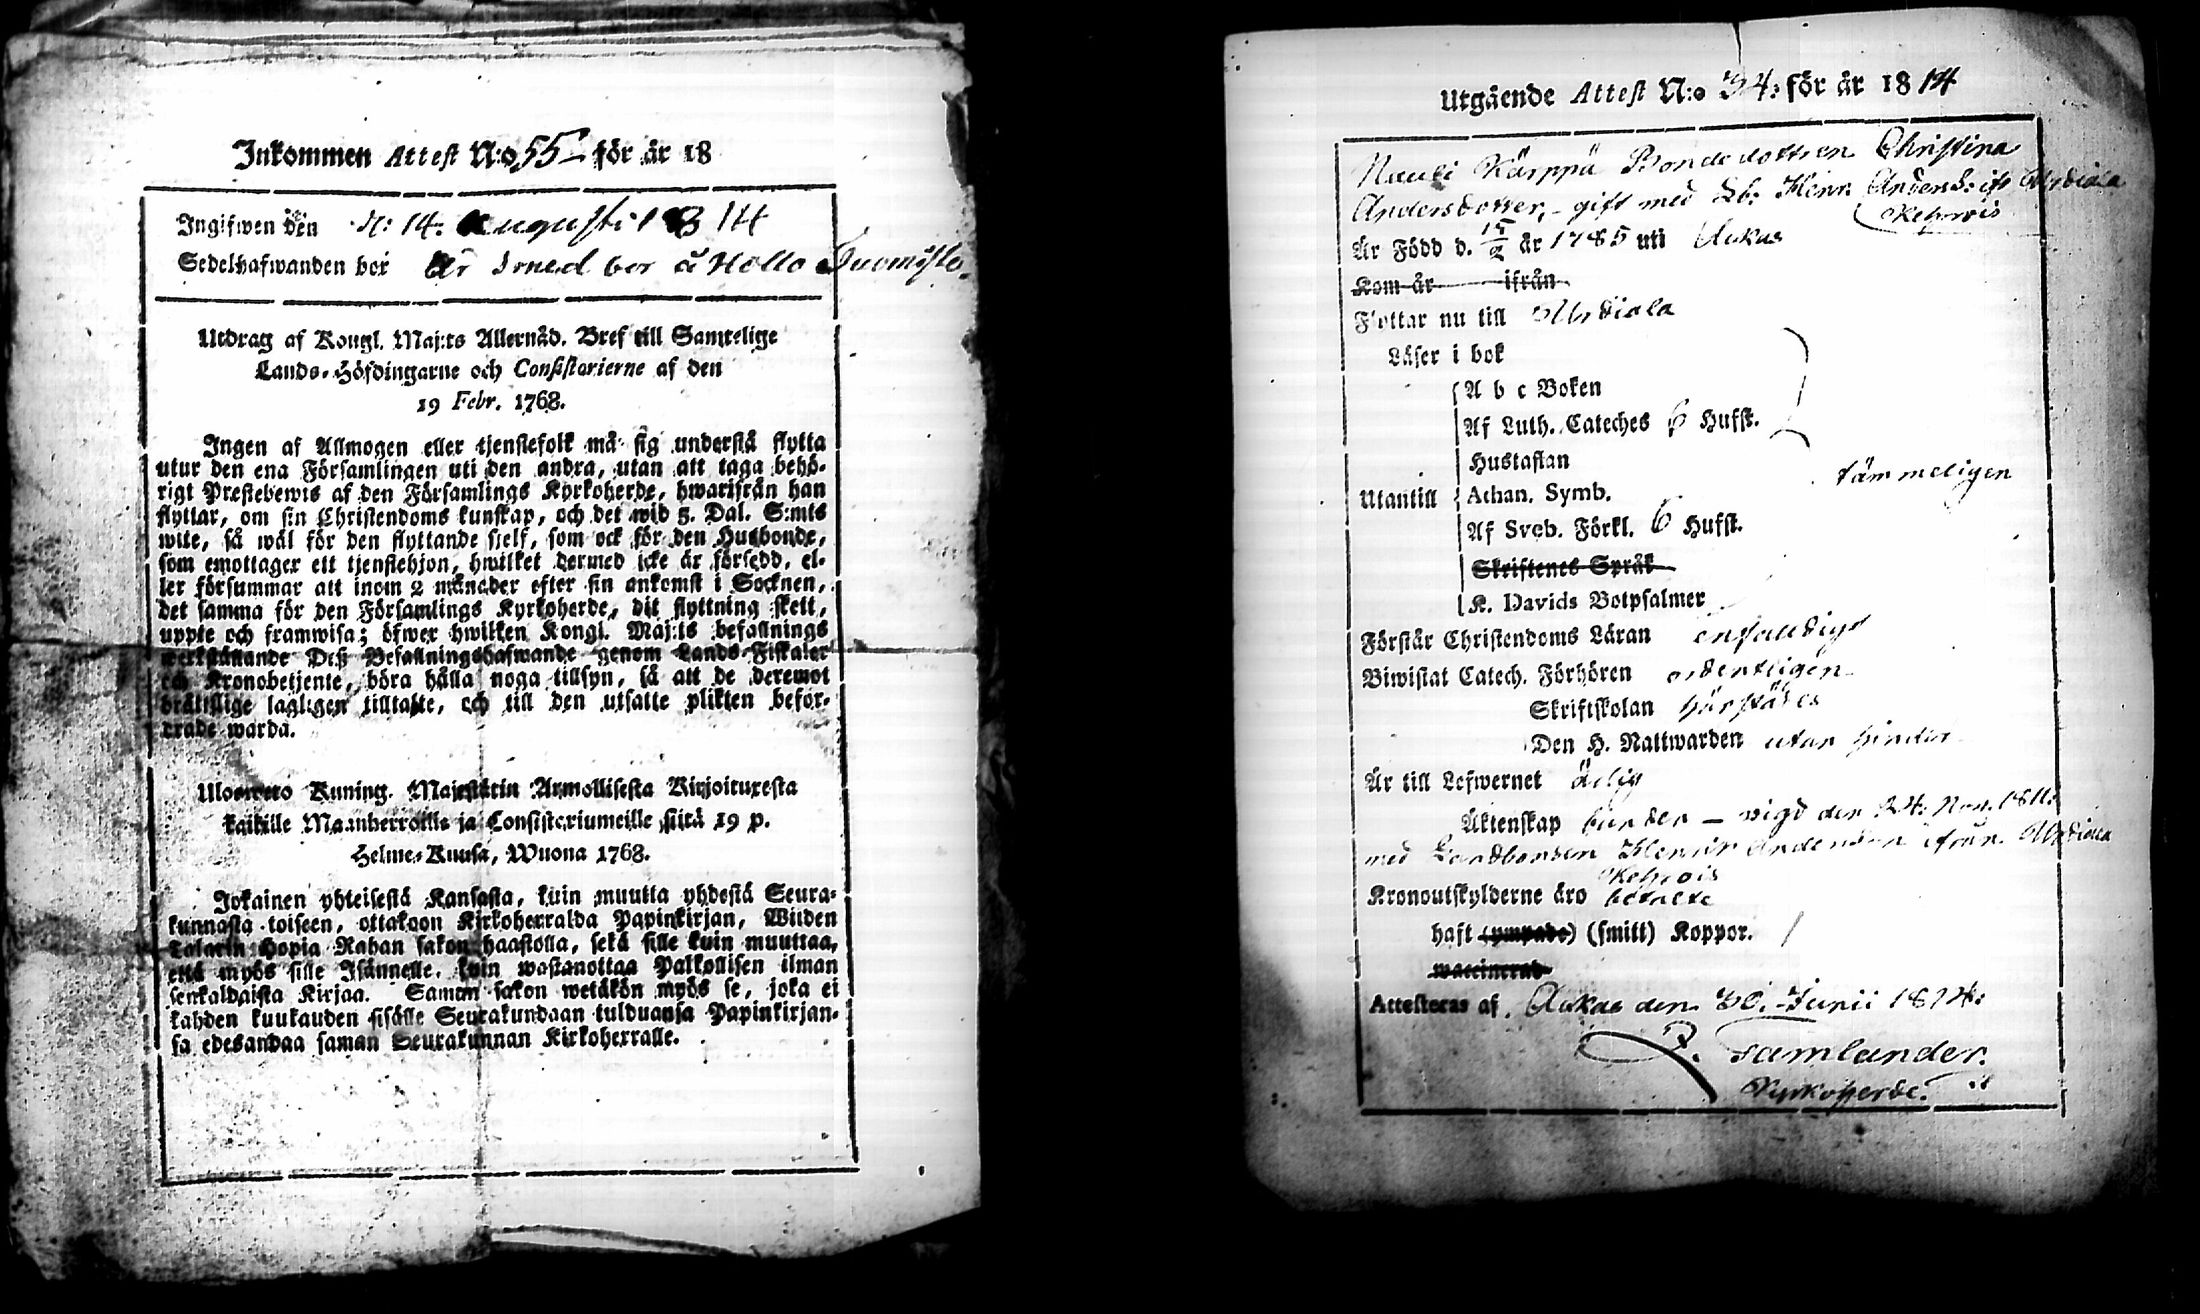 Inkommen Attest N:o 55 för år 18
Ingifwen den d: 14. Augusti 1814
Sedelhafwanden bor å Hollo Tuomisto
Utdrag af Kongl. Maj:ts Allernåd. Bref till Samtelige
Lands-Höfdingarne och Consistorierne af den
19 Febr. 1768.
Ingen af Allmogen eller tjenstefolk må sig understå flytta
utur den ena Församlingen uti den andra, utan att taga behö-
rigt Prestebewis af den Församlings Kyrkoherde, hwarifrån han
flyttar, om sin Christendoms kunskap, och det wid 5. Dal. S:mts
wite, så wäl för den flyttande sjelf, som ock för den Husbonde,
som emottager ett tjenstehjon, hwilket dermed icke är försedd, el-
ler försummar att inom 2 månader efter sin ankomst i Socknen,
det samma för den Församlings Kyrkoherde, dit flyttning skett,
uppte och framwisa; öfwer hwilken Kongl. Maj:ts befallnings
werkställande Deß Befallningshafwande genom Lands-Fiskaler
och Kronobetjente, böra hålla noga tillsyn, så att de deremot
brättslige lagligen tilltalte, och till den utsatte plikten befor-
drade warda.
Ulosweto Kuning. Majestätin Armollisesta Kirjoituxesta
kaikille Maanherroille ja Consistoriumeille siitä 19 p.
Helme-Kuusa, Wuona 1768.
Jokainen yhteisestä Kansasta, kuin muutta yhdestä Seura-
kunnasta toiseen, ottakoon Kirkoherralda Papinkirjan, Wiiden
Talarin Hopia Rahan sakon haastolla, sekä sille kuin muuttaa,
että myös sille Isännelle, kuin wastanottaa Palkollisen ilman
senkaldaista Kirjaa. Saman sakon wetäkön myös se, joka ei
kahden kuukauden sisälle Seurakundaan tulduansa Papinkirjan-
sa edesandaa saman Seurakunnan Kirkoherralle.
Utgående Attest N:o 34: för år 1814
Nauli Kärppä Bondedottren Christina
Andersdotter, - gift med Lb: Henr. Anderss: ifr Urdiala
Kehrois
Är Född d. 15/2 år 1785 uti Ackas
Kom år ifrån
Flyttar nu till Urdiala
Läser i bok
A b c Boken
Af Luth. Cateches 6 Hufst.
Hustaflan
tämmeligen
Utantill Athan. Symb.
Af Sveb. Förkl. 6 Hufst.
Skriftenes Språk
K. Davids Botpsalmer
Förstår Christendoms Läran enfaldigt
Biwistat Catech. Förhören ordentligen
Skriftskolan härstädes
Den H. Nattwarden utan hinder
Är till Lefwernet ärlig
Äktenskap bunden – vigd den 24: Nov. 1811:
med Landbonden Henrik Andersson ifrån Urdiala
Kehrois
Kronoutskylderne äro betalte
haft (ympade) (smitt) Koppor.
waccinerad
Attesteras af Ackas den 30. Junii 1814:
Z. Famlander.
Kyrkoherde.